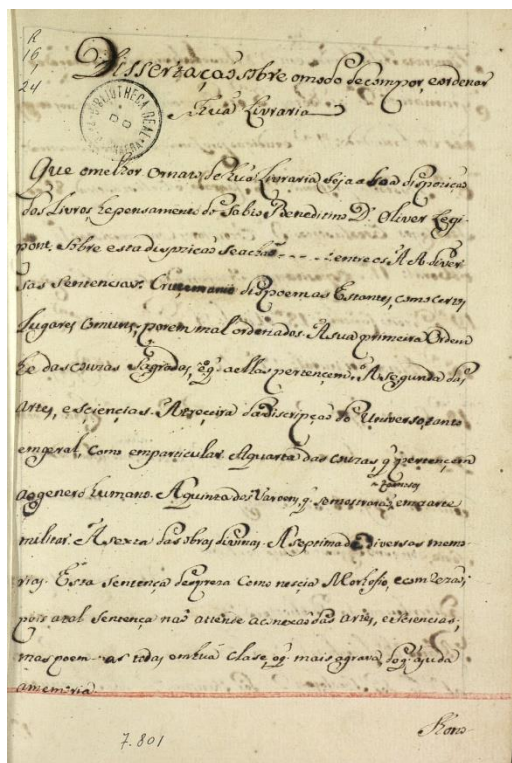 R
16
1
24
Dissertação sobre o modo de compor, e ordenar
huã Livraria
BIBLIOTHECA REAL
Que o melhor Ornato de huã Livraria seja a boa disposição
dos Livros he pensamento do Sabio Benedictino D. Oliver Legi-
pont. Sobre esta disposição se acha - - - - entre os AA. diver-
sas sentenças. dispoem as Estantes, como certos
lugares comuns, porem mal ordenados. A sua primeira Ordem
he das couzas Sagradas, e q. a ellas pertencem. A segunda das
Artes, e sciencias. A terceira da discripção do Universo, tanto
em geral, como em particular. A quarta das couzas, q. pertencem
ao genero humano. A quinta dos Varoens famosos q. se mostrarão em arte
militar. A sexta das obras divinas. A septima de diversas memo-
rias. Esta sentença despreza como nescia Morhofio, e com rezão,
pois a tal sentença não attende a conexão das artes, e sciencias,
mas poem-as todas em huã clase, o q. mais agrava, do q. ajuda
a memoria
7.801